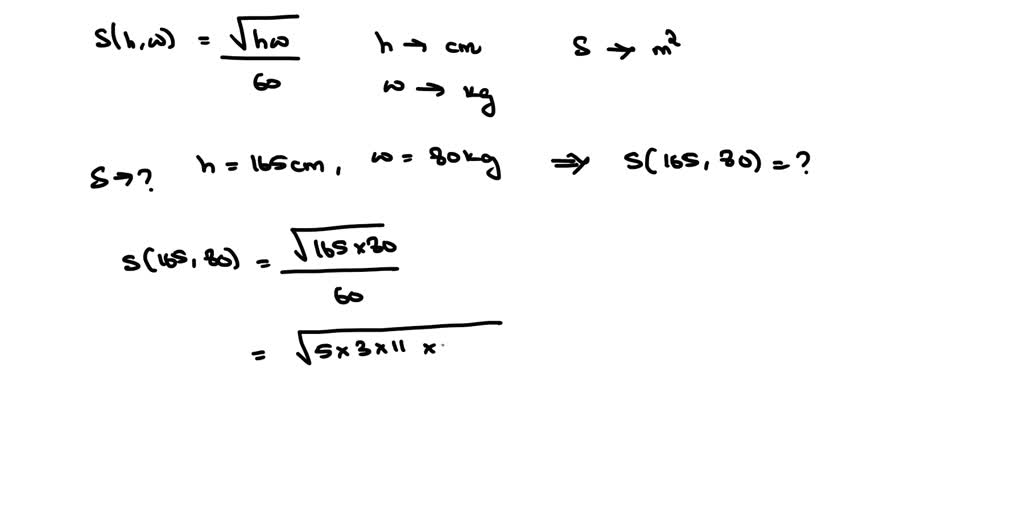 S(h,w) = √hw / 60 h → cm S → m²
w → kg
S → ? h = 165cm, w = 80kg ⇒ S(165, 80) = ?
S(165, 80) = √165×80 / 60
= √5×3×11 ×